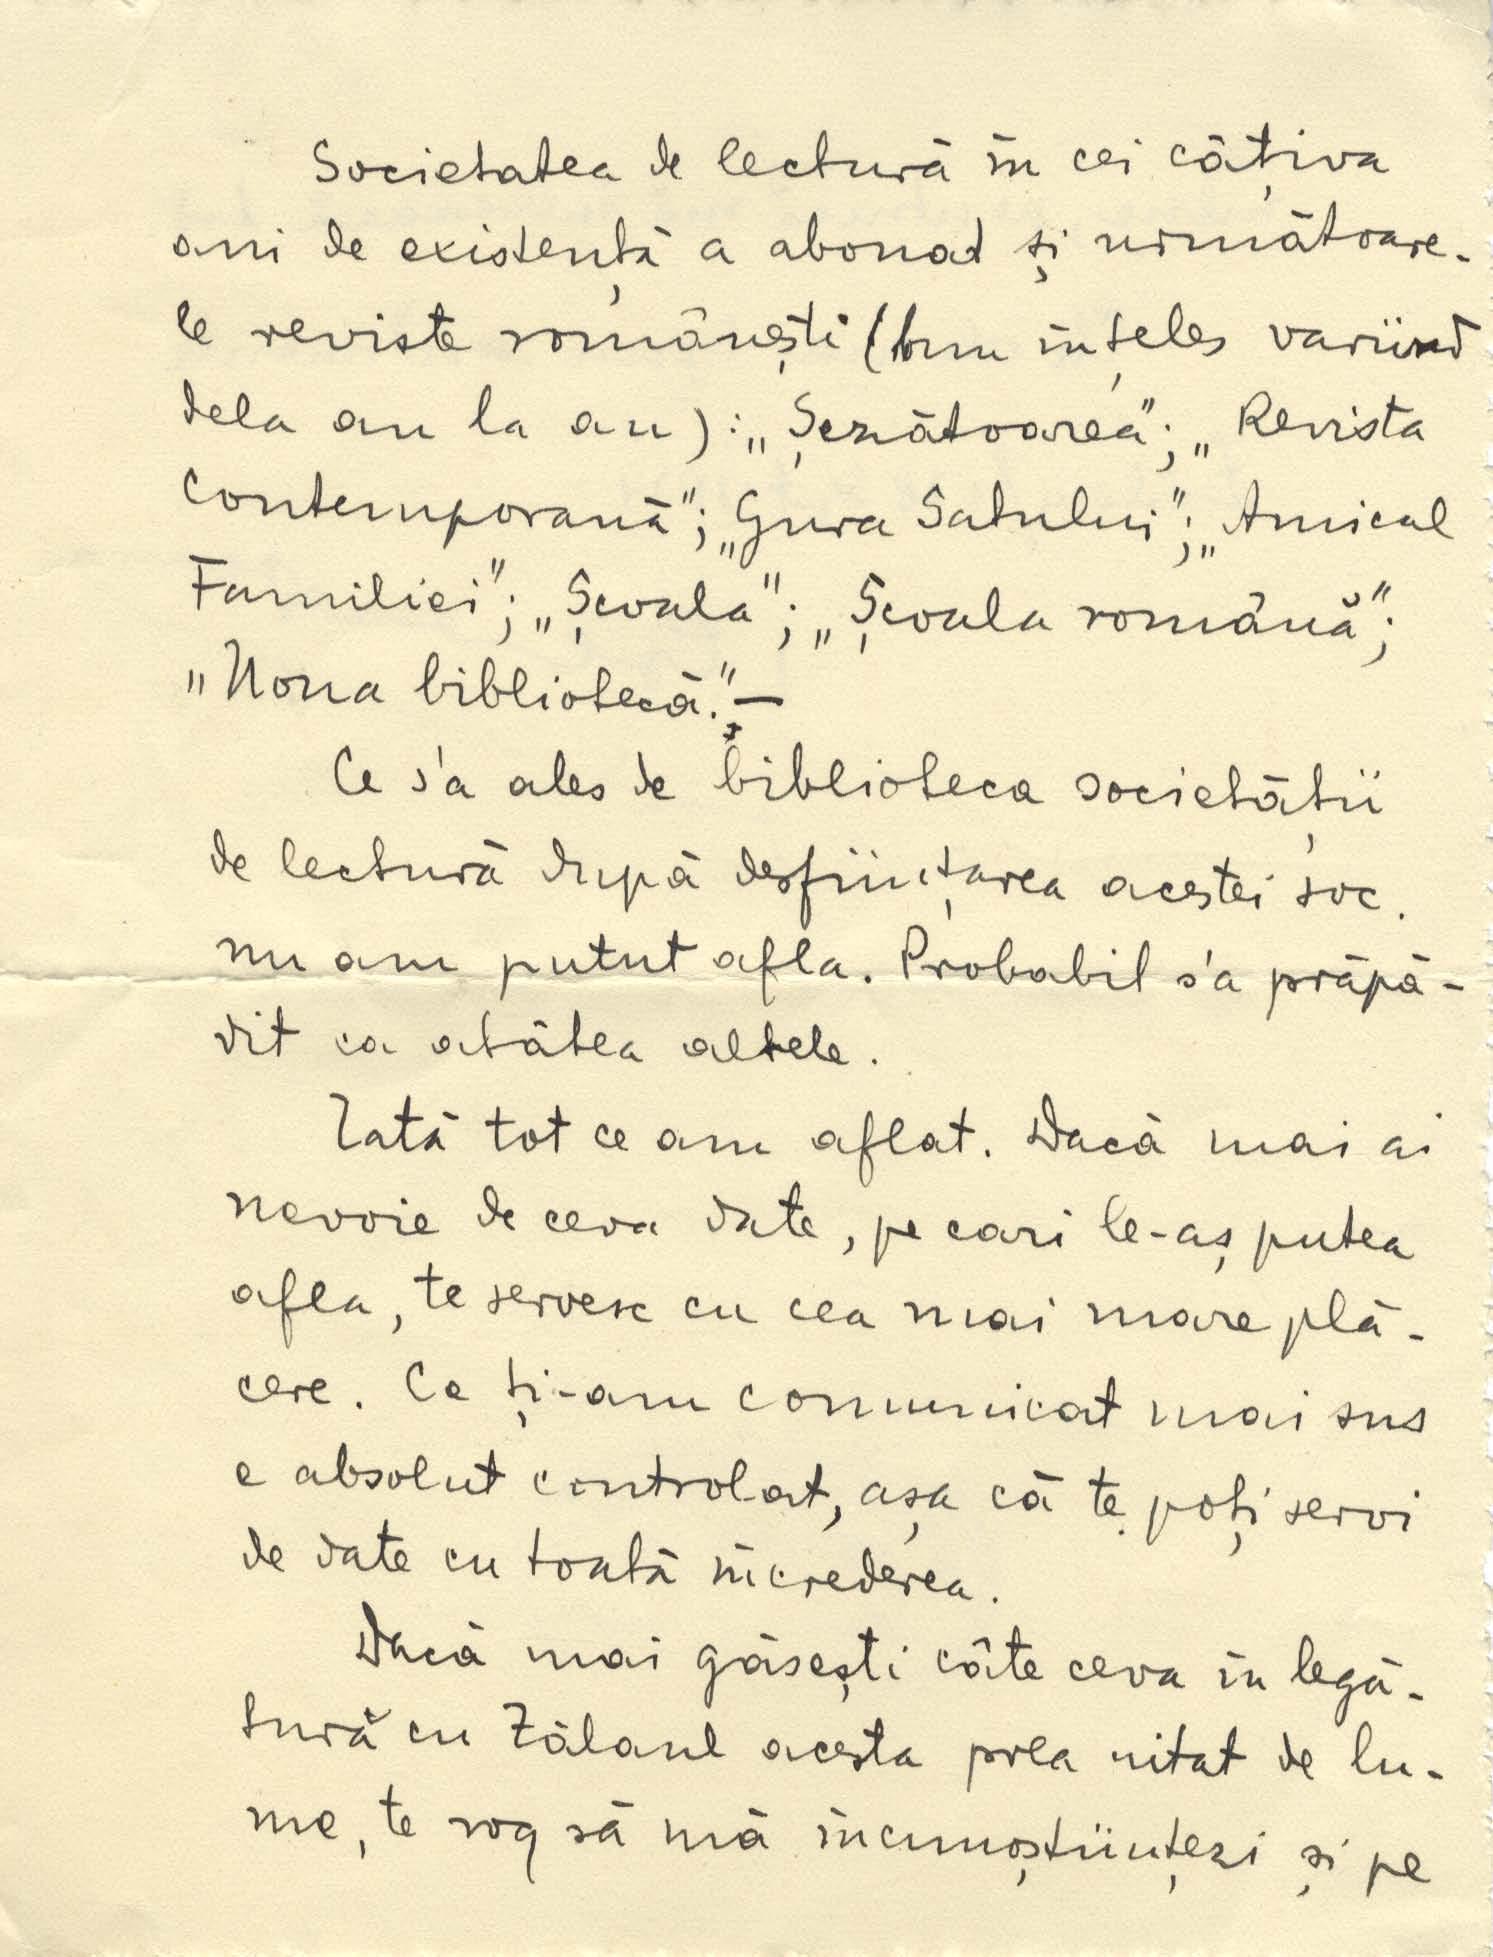 Societatea de lectură în cei câțiva
ani de existență a abonat și următoare-
le reviste românești (bun înțeles variind
dela an la an): „Șezătoarea"; „Revista
Contemporană"; „Gura Satului"; „Amicul
Familiei"; „Școala"; „Școala română";
„Noua bibliotecă." —
Ce s'a ales de biblioteca societății
de lectură după desființarea acestei soc.
nu am putut afla. Probabil s'a prăpă-
dit ca atâtea altele.
Iată tot ce am aflat. Dacă mai ai
nevoie de ceva date, pe cari le-aș putea
afla, te servesc cu cea mai mare plă-
cere. Ce ți-am comunicat mai sus
e absolut controlat, așa că te poți servi
de date cu toată încrederea.
Dacă mai găsești câte ceva în legă-
tură cu Zălaul acesta prea uitat de lu-
me, te rog să mă încunoștiințezi și pe